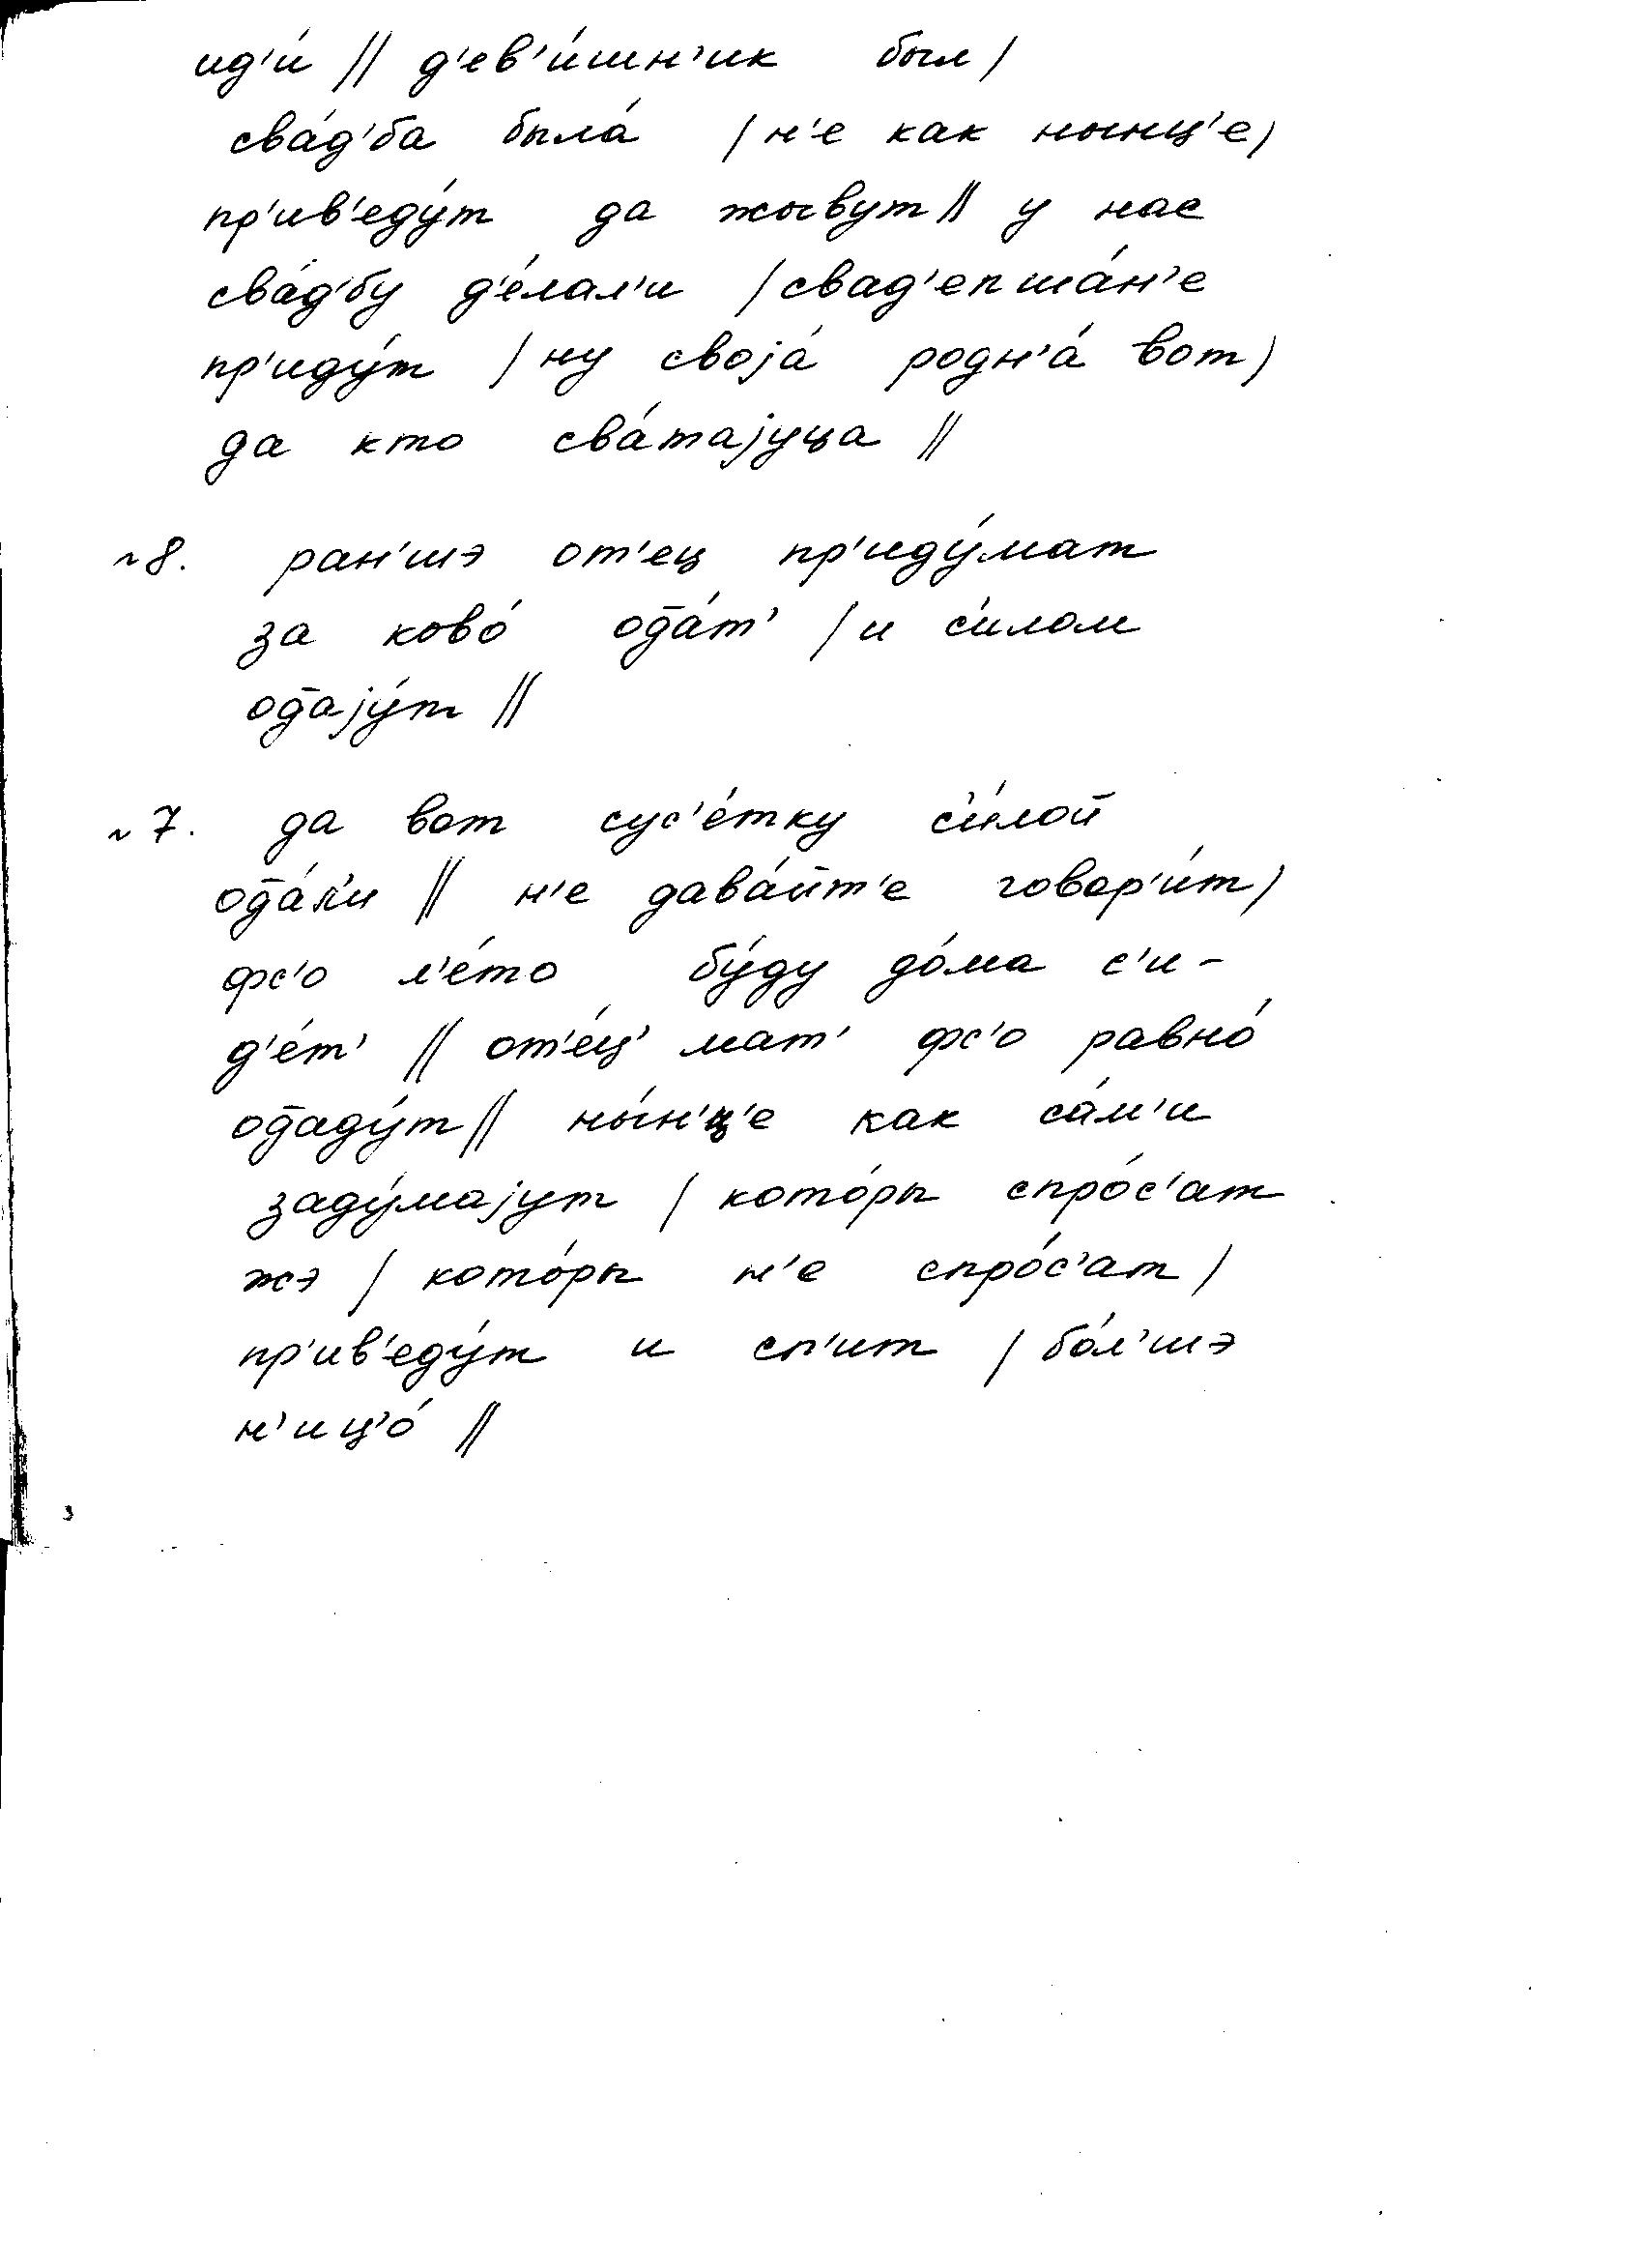 ид'и́ || д'ев'и́шн'ик был /
сва́д'ба была́ / н'е как нынц'е /
пр'ив'еду́т да жывут || у нас
сва́д'бу д'е́лал'и / свад'епша́н'е
пр'иду́т / ну своjа́ родн'а́ вот /
да кто сва́таjуца ||
~8. ран'шэ от'ец пр'иду́мат
за ково́ од̅а́т' / и с'и́лом
од̅аjу́т ||
~7. да вот сус'е́тку с'и́лой
од̅а́л'и || н'е дава́йт'е говор'и́т /
фс'о л'е́то бу́ду до́ма с'и-
д'е́т' || от'е́ц' мат' фс'о равно́
од̅аду́т || ны́н'ц'е как са́м'и
заду́маjут / кото́ры спро́с'ат
жэ / кото́ры н'е спро́с'ат /
пр'ив'еду́т и сп'ит / бо́л'шэ
н'иц'о́ ||